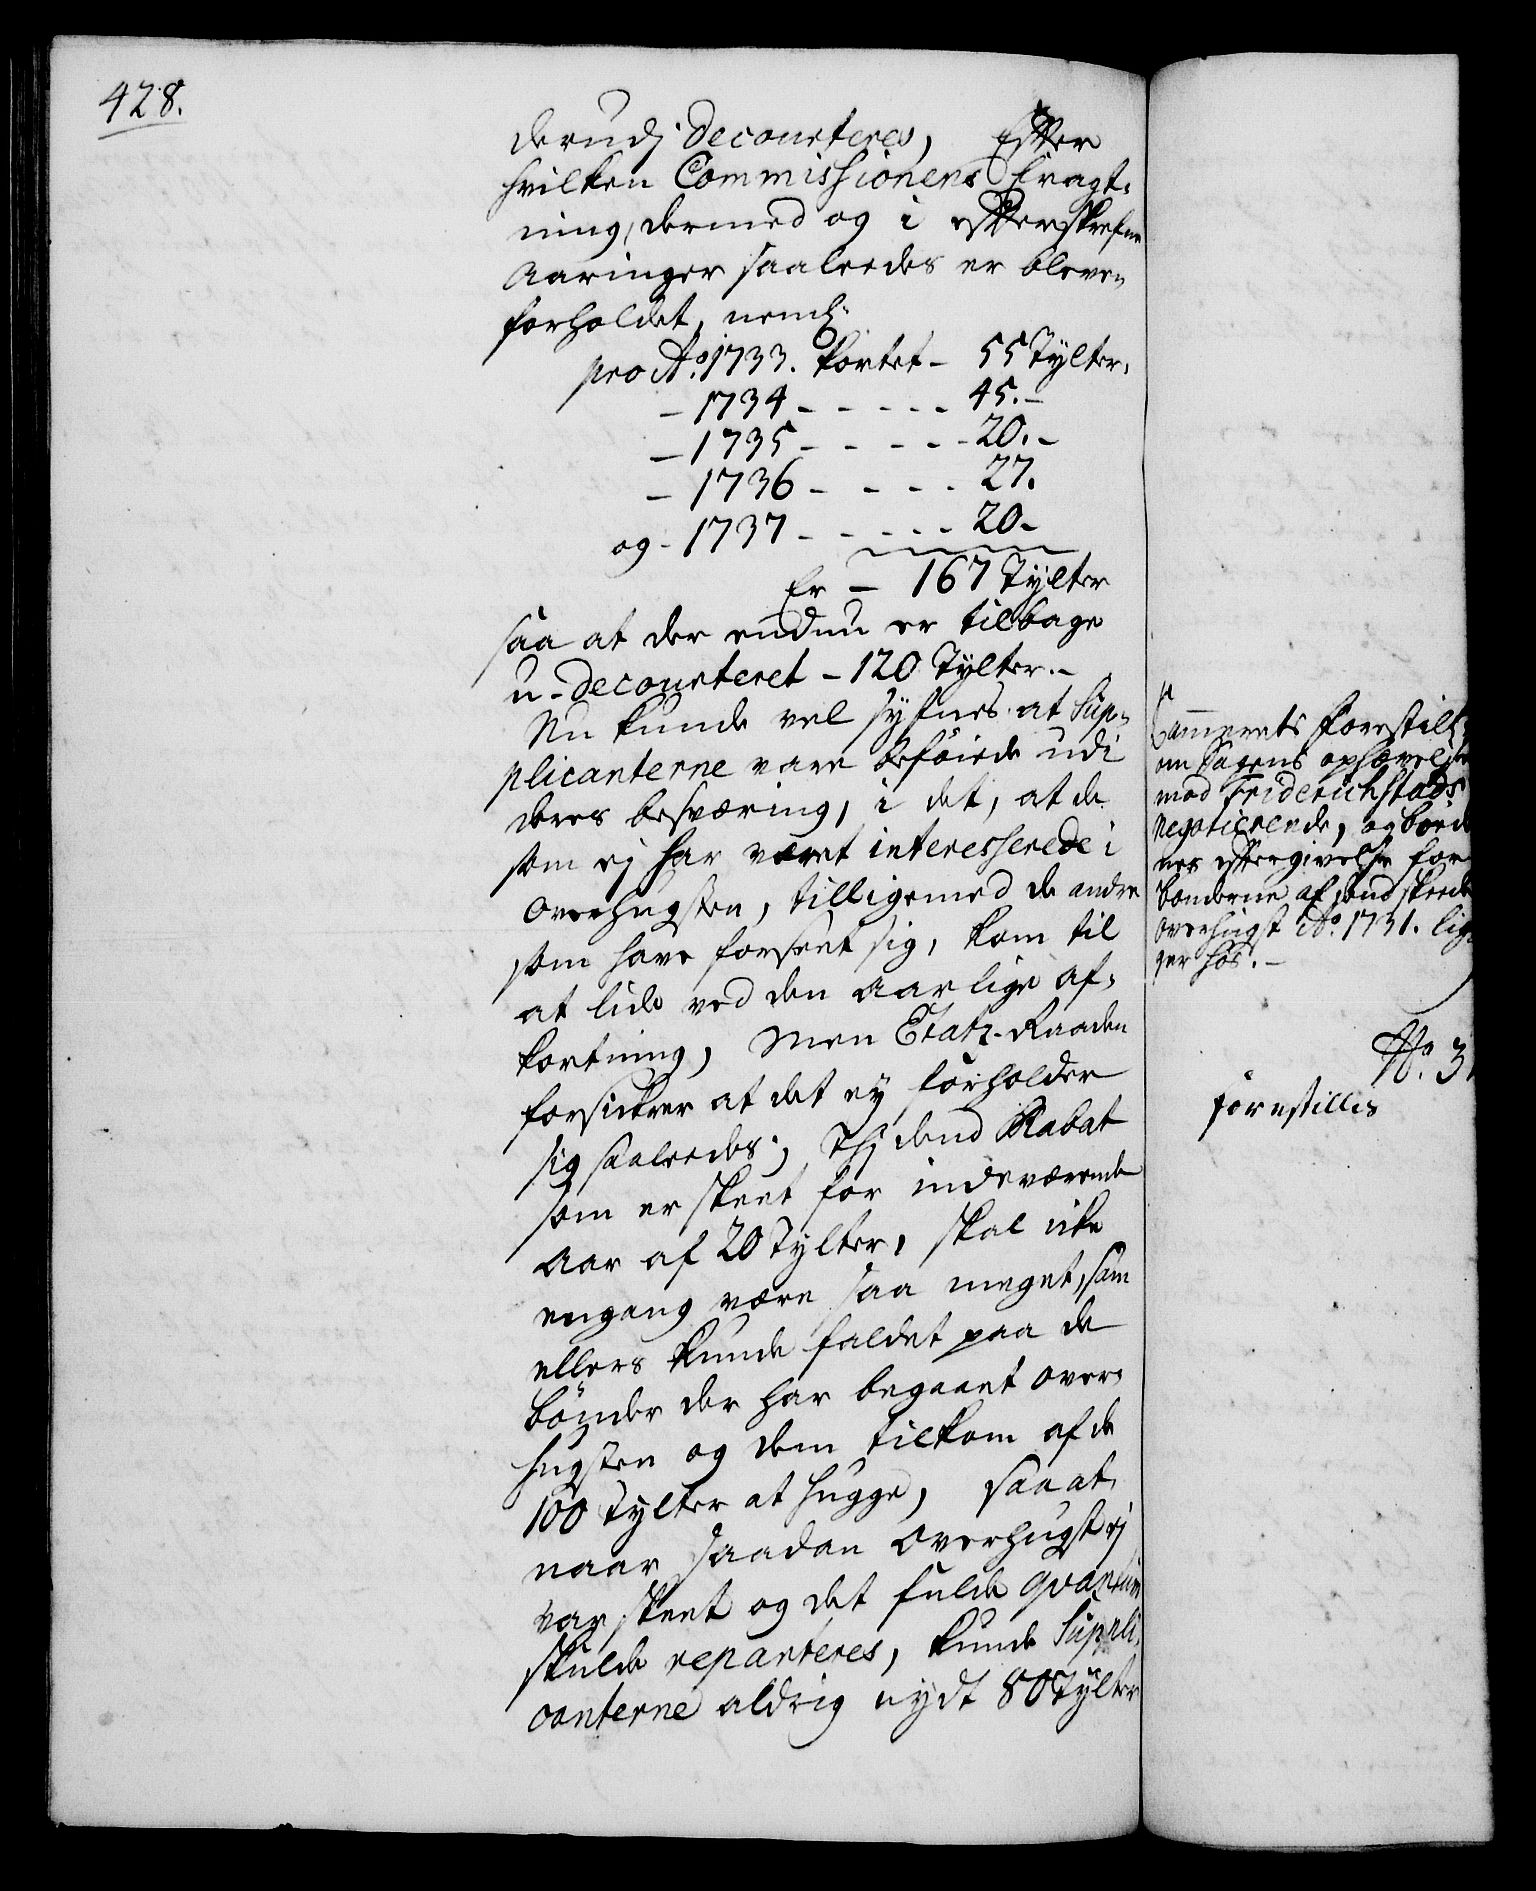 428.
derudj decourteres, Efter
hvilken Commissionens Eragt-
ning, dermed og i efterskrefne
Aaringer saaleedes er bleven
forholdet, neml:
pro Ao. 1733. kortet - 55 Tylter,
- 1734 - - - - - 45. -
- 1735 - - - - - 20. -
- 1736 - - - - 27.
og - 1737 - - - - - 20 -
Er - 167 Tylter
saa at der endnu er tilbage
u-decourteret - 120 Tylter. -
Nu kunde vel syfnes at Sup-
plicanterne vare beföiede udi
deres besværing, i det, at de
som ej har været interesserede i
overhugsten, tilligemed de andre
som have forseet sig, kom til
at lide ved den aarlige af-
kortning, Men Etatz-Raaden
forsickrer at det ey forholder
sig saaleedes; Thj dend Rabat
som er skeet for indeværende
Aar af 20 Tylter, skal icke
engang være saa meget, som
ellers kunde faldet paa de
bönder der har begaaet over-
hugsten og dem tilkom af de
100 Tylter at hugge, saa at
naar saadan overhugst ej
var skeet og det fulde qvantum
skulde reparteres, kunde Suppli-
canterne aldrig nydt 80 Tylter
Cammerets Forestill-
om Sagens ophævelse
mod Friderichstads
Negotierende, og böder-
nes eftergivelse for
bönderne af dend skeede
overhugst Ao. 1731. lig-
ger hos. -
No. 3
Forestillis